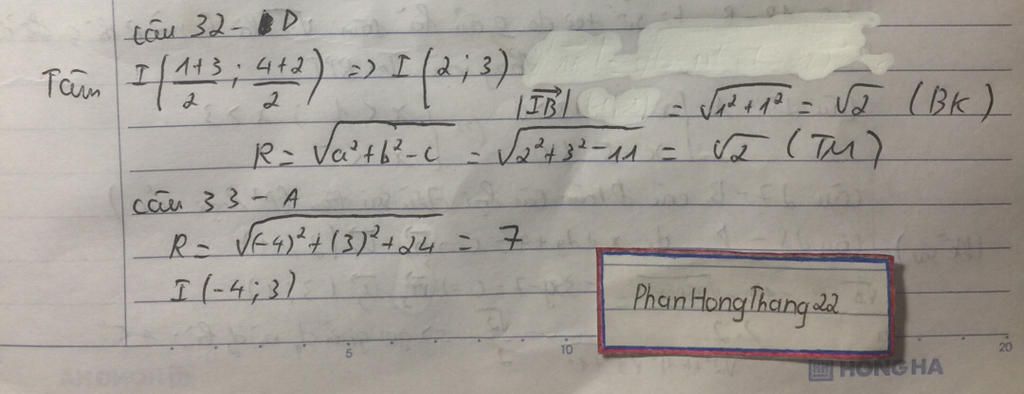 Câu 32 - D
Tâm I(1+3/2; 4+2/2) => I(2; 3)
|IB| = √1²+1² = √2 (BK)
R = √a²+b²-c = √2²+3²-11 = √2 (TM)
Câu 33 - A
R = √(-4)²+(3)²+24 = 7
I(-4; 3)
PhanHongThang22
5 10 20
HONG HA